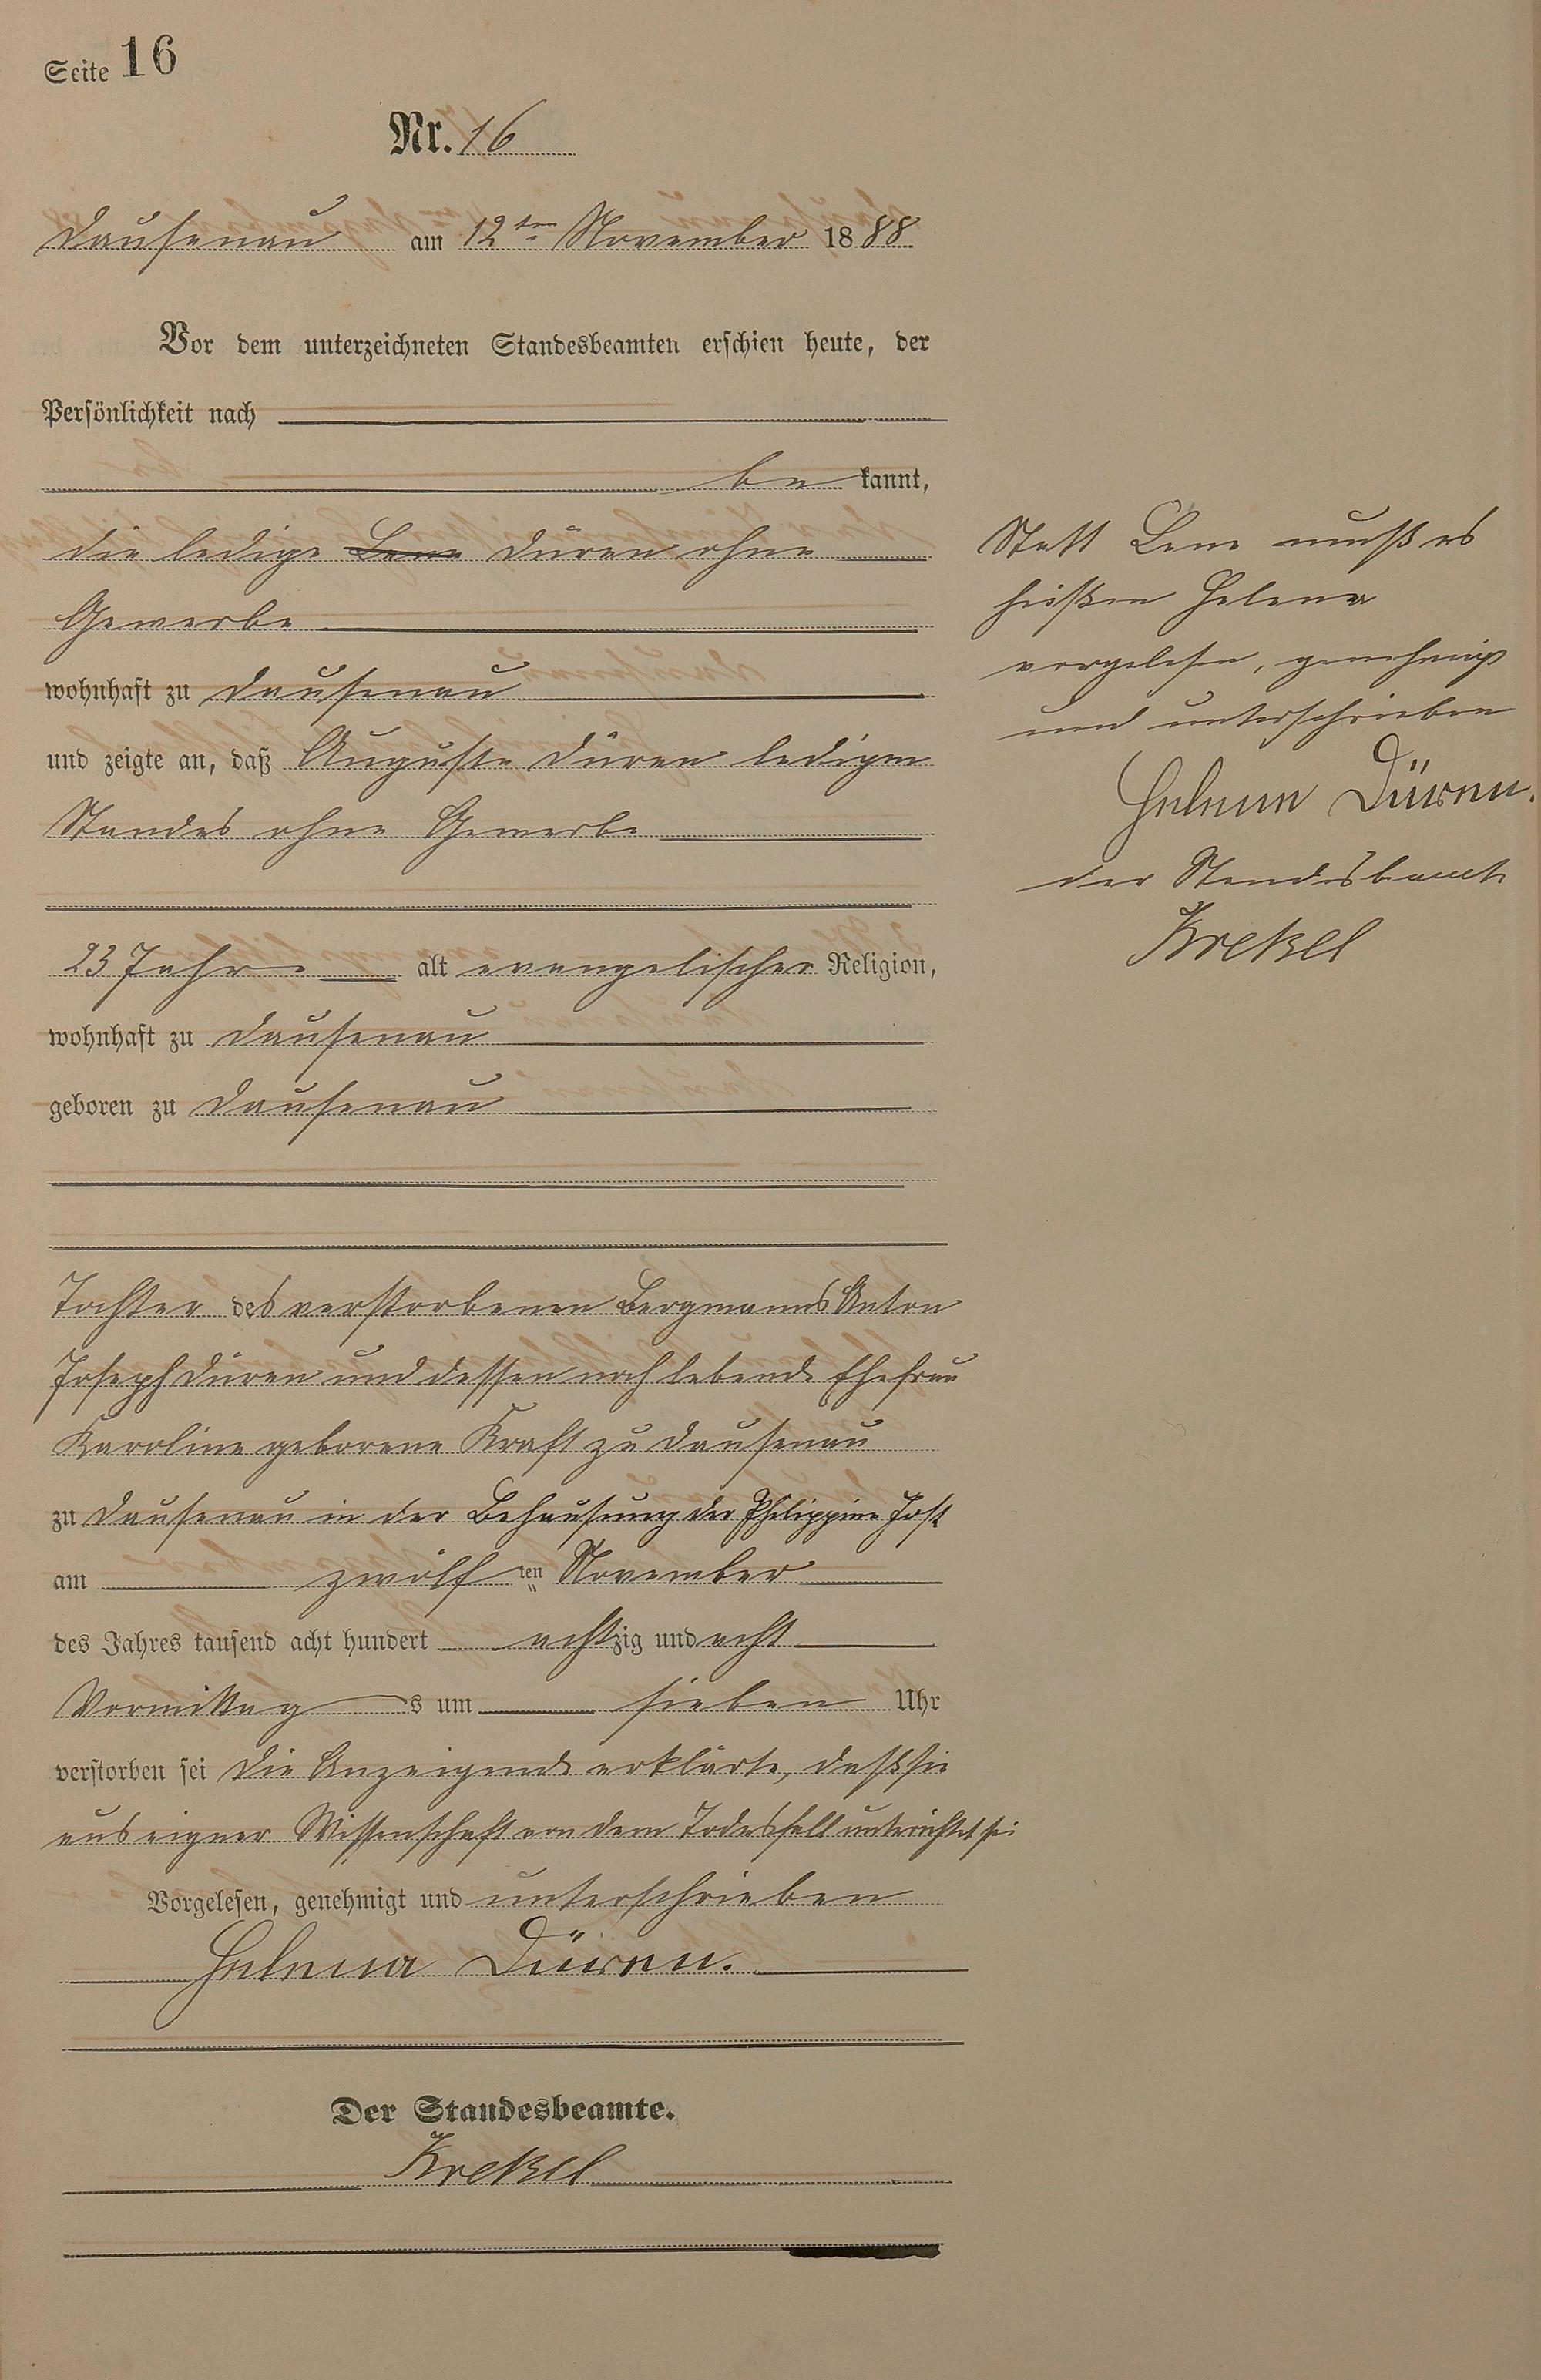 Seite 16
Nr. 16
Dausenau am 12ten November 1888
Vor dem unterzeichneten Standesbeamten erschien heute, der
Persönlichkeit nach
be kannt,
die ledige Lene Düren ohne
Gewerbe
wohnhaft zu Dausenau
und zeigte an, daß Auguste Düren ledigen
Standes ohne Gewerbe
23 Jahre alt evangelischer Religion,
wohnhaft zu Dausenau
geboren zu Dausenau
Tochter des verstorbenen Bergmanns Anton
Joseph Düren und dessen noch lebende Ehefrau
Karoline geborene Kraft zu Dausenau
zu Dausenau in der Behausung der Philippine Jost
am zwölf ten November
des Jahres tausend acht hundert achtzig und acht
Vormittag s um sieben Uhr
verstorben sei Die Anzeigende erklärte, daß sie
aus eigner Wissenschaft von dem Todesfall unterrichtet sei
Vorgelesen, genehmigt und unterschrieben
Helena Düren.
Der Standesbeamte.
Krekel
Statt Lene muß es
heißen Helena
vorgelesen, genehmigt
und unterschrieben
Helena Düren.
der Standesbeamte
Krekel